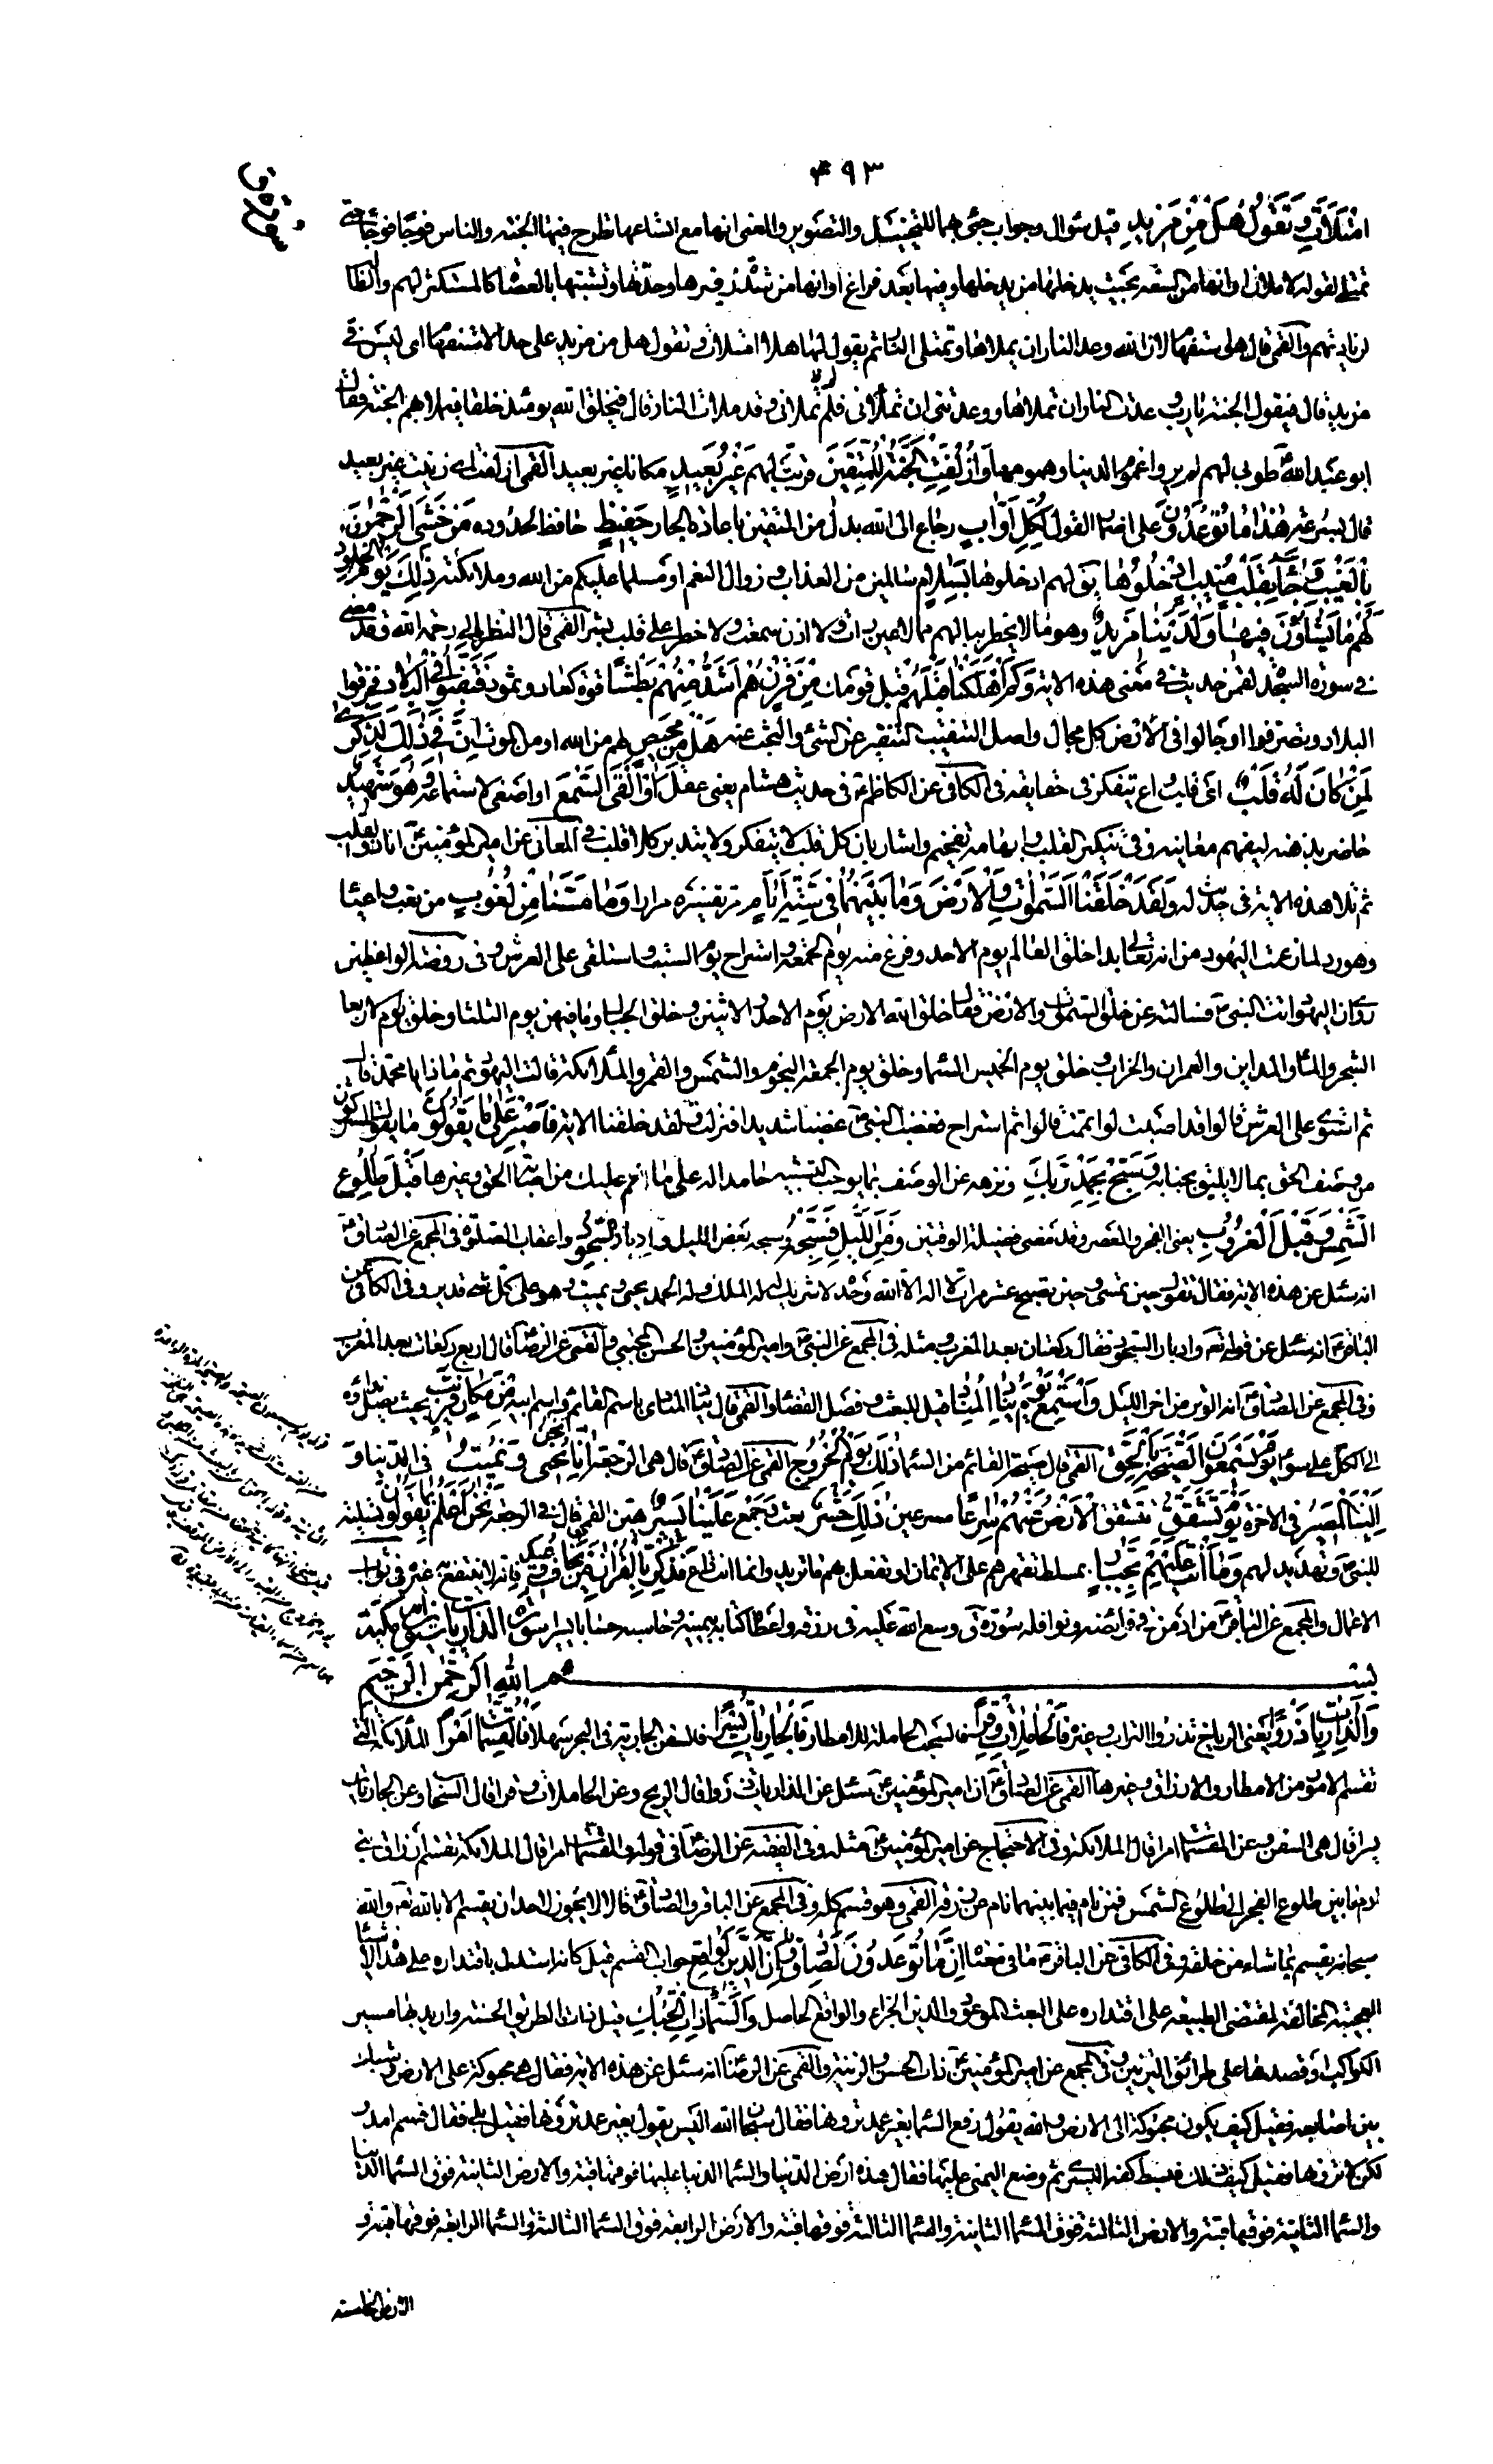 ٤٩٣
سورة ق
امْتَلَأْتِ وَتَقُولُ هَلْ مِنْ مَزِيدٍ قيل سؤال وجواب جيئ بهما للتخييل والتصوير والمعنى انها مع اتساعها تطرح فيها الجنة والناس فوجا فوجا حتى
تمتلي لقوله لاملان او انها من السعة بحيث يدخلها من يدخلها وفيها بعد فراغ او انها من شدة زفيرها وحدتها وتشبثها بالعصاة كالمستكثر لهم والطالب
لزيادتهم والقمى قال هو استفهام لان الله وعد النار ان يملاها فتمتلى النار ثم يقول لها هل امتلات وتقول هل من مزيد على حد الاستفهام اى ليس في
مزيد قال فتقول الجنة يا رب وعدت النار ان تملاها ووعدتنى ان تملانى فلم لا تملانى وقد ملات النار قال فيخلق الله يومئذ خلقا فيملا بهم الجنة فقال
ابو عبد الله ع طوبى لهم لم يروا غموم الدنيا وهمومها وَأُزْلِفَتِ الْجَنَّةُ لِلْمُتَّقِينَ قربت لهم غَيْرَ بَعِيدٍ مكانا غير بعيد القمى ازلفت اى زينت غير بعيد
قال بسرعة هَذَا مَا تُوعَدُونَ على اضمار القول لِكُلِّ أَوَّابٍ رجاع الى الله بدل من المتقين باعادة الجار حَفِيظٍ حافظ لحدوده مَنْ خَشِيَ الرَّحْمَنَ
بِالْغَيْبِ وَجَاءَ بِقَلْبٍ مُنِيبٍ ادْخُلُوهَا يق لهم ادخلوها بِسَلَامٍ سالمين من العذاب وزوال النعم او مسلما عليكم من الله وملائكته ذَلِكَ يَوْمُ الْخُلُودِ
لَهُمْ مَا يَشَاؤُنَ فِيهَا وَلَدَيْنَا مَزِيدٌ وهو ما لا يخطر ببالهم مما لا عين رات ولا اذن سمعت ولا خطر على قلب بشر القمى قال النظر الى رحمة الله وقد مضى
في سورة السجدة لقمن حديث في معنى هذه الاية وَكَمْ أَهْلَكْنَا قَبْلَهُمْ قبل قومك مِنْ قَرْنٍ هُمْ أَشَدُّ مِنْهُمْ بَطْشًا قوة كعاد وثمود فَنَقَّبُوا فِي الْبِلَادِ فخرقوا
البلاد وتصرفوا او جالوا في الارض كل مجال واصل التنقيب التنقير عن الشئ والبحث عنه هَلْ مِنْ مَحِيصٍ لهم من الله او من الموت إِنَّ فِي ذَلِكَ لَذِكْرَى
لِمَنْ كَانَ لَهُ قَلْبٌ اى قلب واع يتفكر في حقايقه في الكافي عن الكاظم ع في حديث هشام يعنى عقل أَوْ أَلْقَى السَّمْعَ او اصغى لاستماعه وَهُوَ شَهِيدٌ
حاضر بذهنه ليفهم معانيه وفى تنكير القلب وابهامه تفخيم واشار بان كل قلب لا يتفكر ولا يتدبر كلا قلب في المعانى عن امير المؤمنين ع انا ذو القلب
ثم تلا هذه الاية في حديث له وَلَقَدْ خَلَقْنَا السَّمَوَاتِ وَالْأَرْضَ وَمَا بَيْنَهُمَا فِي سِتَّةِ أَيَّامٍ مر تفسيره مرارا وَمَا مَسَّنَا مِنْ لُغُوبٍ من تعب واعياء
وهو رد لما زعمت اليهود من انه تعالى بدا خلق العالم يوم الاحد وفرغ منه يوم الجمعة واستراح يوم السبت واستلقى على العرش وفى روضة الواعظين
روى ان اليهود اتت النبى ص فسالته عن خلق السموات والارض فقال خلق الله الارض يوم الاحد والاثنين وخلق الجبال وما فيهن يوم الثلثا وخلق يوم الاربعا
الشجر والماء والمداين والعمران والخراب وخلق يوم الخميس السماء وخلق يوم الجمعة النجوم والشمس والقمر والملائكة قالت اليهود ثم ماذا يا محمد قال
ثم استوى على العرش قالوا قد اصبت لو اتممت قالوا ثم استراح فغضب النبى ص غضبا شديدا فنزلت ولقد خلقنا الاية فَاصْبِرْ عَلَى مَا يَقُولُونَ ما يقول المشركون
من وصف الحق بما لا يليق بجنابه وَسَبِّحْ بِحَمْدِ رَبِّكَ ونزهه عن الوصف بما يوجب التشبيه حامدا له على ما انعم عليك من اصابة الحق وغيرها قَبْلَ طُلُوعِ
الشَّمْسِ وَقَبْلَ الْغُرُوبِ يعنى الفجر والعصر وقد مضى فضيلة الوقتين وَمِنَ اللَّيْلِ فَسَبِّحْهُ وسبحه بعض الليل وَأَدْبَارَ السُّجُودِ واعقاب الصلوة في المجمع عن الصادق ع
انه سئل عن هذه الاية فقال تقول حين تمسى وحين تصبح عشر مرات لا اله الا الله وحده لا شريك له له الملك وله الحمد يحيى ويميت وهو على كل شئ قدير وفى الكافى عن
الباقر ع انه سئل عن قوله تعه وادبار السجود فقال ركعتان بعد المغرب ومثله في المجمع عن النبى ص وامير المؤمنين والحسن المجتبى والقمى عن الرضا ع قال اربع ركعات بعد المغرب
وفى المجمع عن الصادق ع انه الوتر من اخر الليل وَاسْتَمِعْ يَوْمَ يُنَادِ الْمُنَادِ قيل للبعث وفصل القضاء والقمى قال ينادى المنادى باسم القائم واسم ابيه مِنْ مَكَانٍ قَرِيبٍ بحيث يصل نداؤه
الى الكل على سواء يَوْمَ يَسْمَعُونَ الصَّيْحَةَ بِالْحَقِّ القمى قال صيحة القائم من السماء ذَلِكَ يَوْمُ الْخُرُوجِ القمى عن الصادق ع قال هى الرجعة إِنَّا نَحْنُ نُحْيِي وَنُمِيتُ في الدنيا وَ
إِلَيْنَا الْمَصِيرُ في الاخرة يَوْمَ تَشَقَّقُ تتشقق الْأَرْضُ عَنْهُمْ سِرَاعًا مسرعين ذَلِكَ حَشْرٌ بعث وجمع عَلَيْنَا يَسِيرٌ هين القمى قال في الرجعة نَحْنُ أَعْلَمُ بِمَا يَقُولُونَ تسلية
للنبى ص وتهديد لهم وَمَا أَنْتَ عَلَيْهِمْ بِجَبَّارٍ بمسلط تقهرهم على الايمان او تفعل بهم ما تريد وانما انت داع فَذَكِّرْ بِالْقُرْآنِ مَنْ يَخَافُ وَعِيدِ فانه لا ينتفع به غيره في ثواب
الاعمال والمجمع عن الباقر ع من ادمن في فرائضه ونوافله سورة ق وسع الله عليه في رزقه واعطاه كتابه بيمينه وحاسبه حسابا يسيرا سورة الذاريات ستون آية مكية
بسم الله الرحمن الرحيم
وَالذَّارِيَاتِ ذَرْوًا يعنى الرياح تذروا التراب وغيره فَالْحَامِلَاتِ وِقْرًا فالسحب الحاملة للامطار فَالْجَارِيَاتِ يُسْرًا فالسفن الجارية في البحر سهلا فَالْمُقَسِّمَاتِ أَمْرًا الملائكة التى
تقسم الامور من الامطار والارزاق وغيرها القمى عن الصادق ع ان امير المؤمنين ع سئل عن الذاريات ذروا قال الريح وعن الحاملات وقرا قال السحاب وعن الجاريات
يسرا قال هى السفن وعن المقسمات امرا قال الملائكة وفى الاحتجاج عن امير المؤمنين ع مثله وفى الفقيه عن الرضا ع في قوله فالمقسمات امرا قال الملائكة تقسم ارزاق بنى
ادم ما بين طلوع الفجر الى طلوع الشمس فمن نام فيما بينهما نام عن رزقه القمى وهو قسم كله وفى المجمع عن الباقر والصادق ع قالا لا يجوز لاحد ان يقسم الا بالله تعه والله
سبحانه يقسم بما شاء من خلقه وفى الكافى عن الباقر ع ما في معناه إِنَّمَا تُوعَدُونَ لَصَادِقٌ وَإِنَّ الدِّينَ لَوَاقِعٌ جواب القسم قيل كانه استدل باقتداره على هذه الاشياء
العجيبة المخالفة لمقتضى الطبيعة على اقتداره على البعث الموعود والدين الجزاء والواقع الحاصل وَالسَّمَاءِ ذَاتِ الْحُبُكِ قيل ذات الطرائق الحسنة واريد بها مسير
الكواكب او نضدها على طرائق التزيين وفى المجمع عن امير المؤمنين ع ذات الحسن والزينة والقمى عن الرضا ع انه سئل عن هذه الاية فقال هى محبوكة على الارض وشبك
بين اصابعه فقيل كيف يكون محبوكة الى الارض والله يقول رفع السماء بغير عمد ترونها فقال سبحان الله اليس يقول بغير عمد ترونها فقيل بلى فقال فثم عمد و
لكن لا ترونها فقيل كيف ذلك فبسط كفه اليسرى ثم وضع اليمنى عليها فقال هذه ارض الدنيا والسماء الدنيا عليها فوقها قبة والارض الثانية فوق السماء الدنيا
والسماء الثانية فوقها قبة والارض الثالثة فوق السماء الثانية والسماء الثالثة فوقها قبة والارض الرابعة فوق السماء الثالثة والسماء الرابعة فوقها قبة و
الارض الخامسة